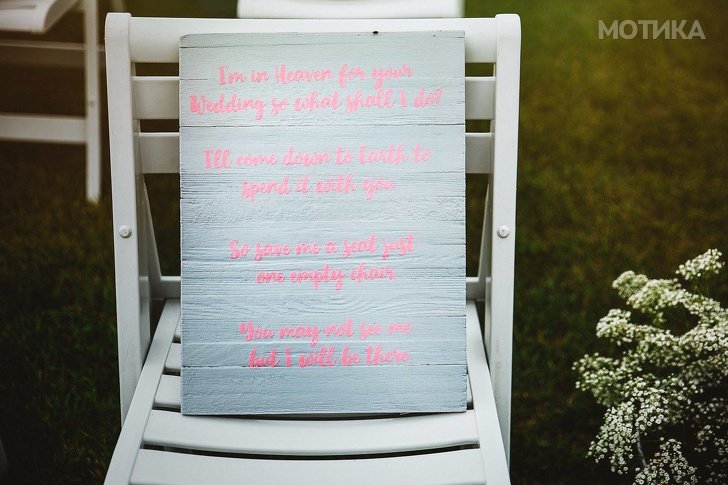 МОТИКА
I'm in Heaven for your
Wedding so what shall I do?
I'll come down to Earth to
spend it with you
So save me a seat just
one empty chair
You may not see me
but I will be there